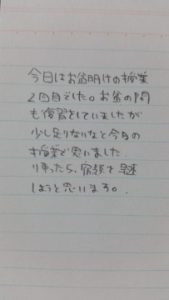 今日はお盆明けの授業
2回目でした。お盆の間
も復習をしていましたが
少し足りないなと今日の
授業で思いました
帰ったら、宿題と
しようと思います。